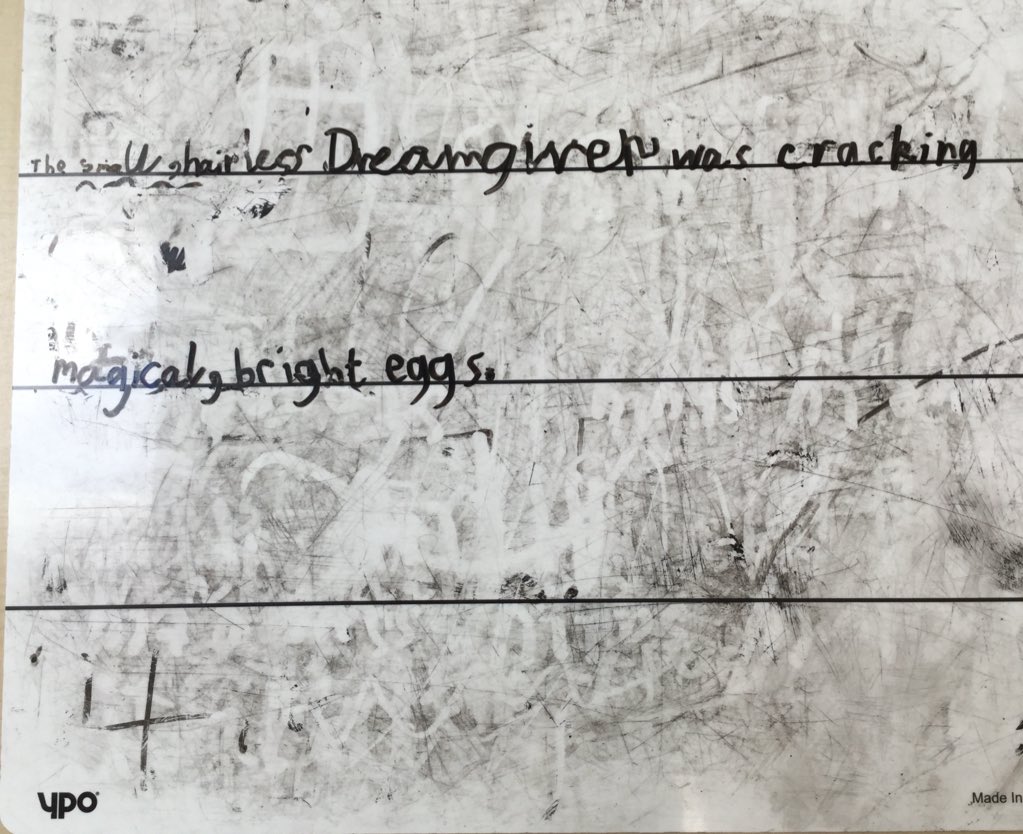 The small, hairless Dreamgiver was cracking
magical, bright eggs.
ypo
Made In